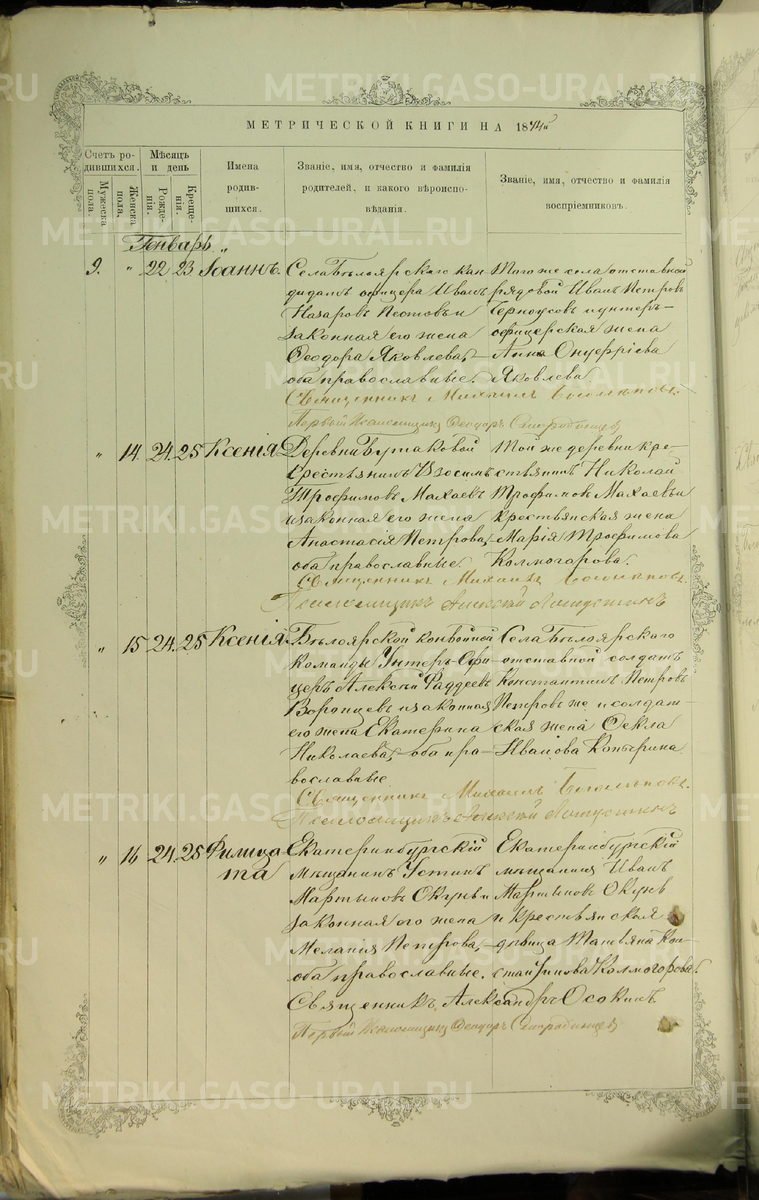 МЕТРИЧЕСКОЙ КНИГИ НА 1874й
Счетъ родившихся.
Мужеска пола.
Женска пола.
Мѣсяцъ и день
Рожденія.
Крещенія.
Имена родившихся.
Званіе, имя, отчество и фамилія родителей, и какого вѣроисповѣданія.
Званіе, имя, отчество и фамилія воспріемниковъ.
Генварь „
9. „ 22 23 Іоаннъ.
Села Бѣлоярскаго кан
дидатъ офицера Иванъ
Назаровъ Пестовъ и
законная его жена
Ѳеодора Яковлева, –
оба православные.
Того же села отставной
рядовой Иванъ Петровъ
Черноусовъ и унтеръ-
офицерская жена
Анна Онуфріева
Яковлева
Священникъ Михаилъ
Первый Псаломщикъ Ѳеодоръ
„ 14. 24. 25 Ксенія
Деревни Бутаковой
крестьянинъ Изосимъ
Трофимовъ Махаевъ
и законная его жена
Анастасія Петрова,
оба православные.
Той же деревни кре-
стьянинъ Николай
Трофимовъ Махаевъ и
крестьянская жена
Марія Трофимова
Колмогорова.
Священникъ Михаилъ
Псаломщикъ Алексѣй
„ 15 24. 25 Ксенія
Бѣлоярской конвойной
команды Унтеръ-Офи
церъ Алексѣй Фаддеевъ
Воронцевъ и законная
его жена Екатерина
Николаева, оба пра-
вославные
Села Бѣлоярскаго
отставной солдатъ
Константинъ Петровъ
Петровъ же и солдат-
ская жена Ѳекла
Иванова Копырина
Священникъ Михаилъ
Псаломщикъ Алексѣй
„ 16 24. 25 Филица
та
Екатеринбургскій
мѣщанинъ Устинъ
Мартыновъ Окуневъ и
законная его жена
Меланія Петрова, –
оба православные.
Екатеринбургскій
мѣщанинъ Иванъ
Мартыновъ Окуневъ
и крестьянская
дѣвица Татьяна Кон-
стантинова Колмогорова.
Священникъ Александръ Осокинъ.
Первый Псаломщикъ Ѳеодоръ
METRIKI.GASO-URAL.RU